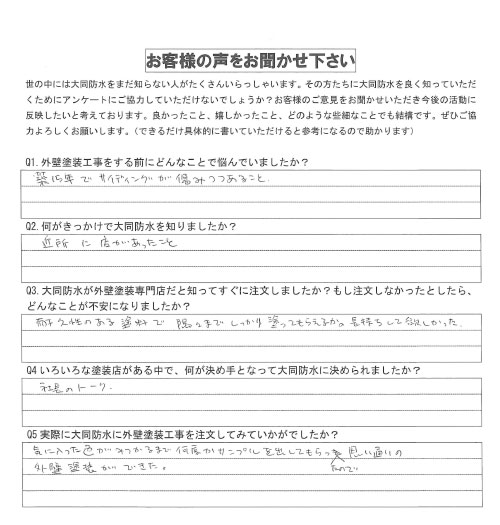 お客様の声をお聞かせ下さい
世の中には大同防水をまだ知らない人がたくさんいらっしゃいます。その方たちに大同防水を良く知っていただ
くためにアンケートにご協力していただけないでしょうか？お客様のご意見をお聞かせいただき今後の活動に
反映したいと考えております。良かったこと、嬉しかったこと、どのような些細なことでも結構です。ぜひご協
力よろしくお願いします。（できるだけ具体的に書いていただけると参考になるので助かります）
Q1. 外壁塗装工事をする前にどんなことで悩んでいましたか？
築15年でサイディングが傷みつつあること.
Q2. 何がきっかけで大同防水を知りましたか？
近所に店があったこと
Q3. 大同防水が外壁塗装専門店だと知ってすぐに注文しましたか？もし注文しなかったとしたら、
どんなことが不安になりましたか？
耐久性のある塗料で隅々までしっかり塗ってもらえるか。長持ちして欲しかった.
Q4 いろいろな塗装店がある中で、何が決め手となって大同防水に決められましたか？
社長のトーク.
Q5 実際に大同防水に外壁塗装工事を注文してみていかがでしたか？
気に入った色がみつかるまで何度かサンプルを出してもらった 思い通りの
なので
外壁塗装ができた。